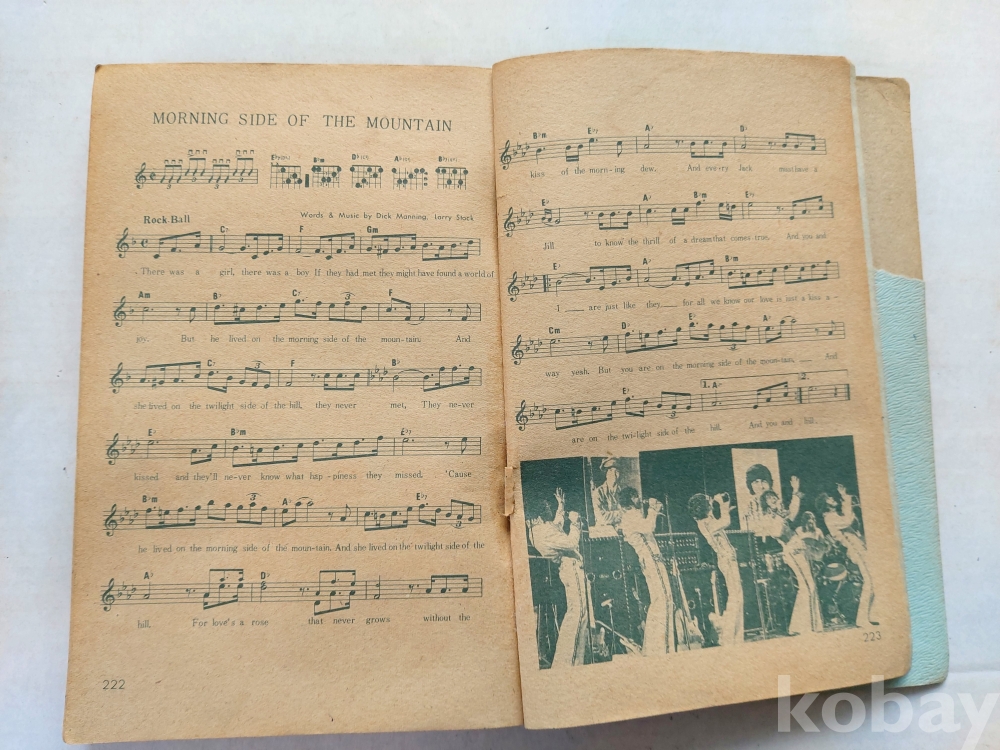 MORNING SIDE OF THE MOUNTAIN
Rock Ball
Words & Music by Dick Manning, Larry Stock
C7 F Gm
There was a girl, there was a boy If they had met they might have found a world of
Am B♭ C7 F
joy. But he lived on the morning side of the moun-tain. And
C7 F B♭
she lived on the twilight side of the hill. they never met, They ne-ver
E♭ B♭m E♭7
kissed and they'll ne-ver know what hap-piness they missed. 'Cause
B♭m A♭ E♭7
he lived on the morning side of the moun-tain. And she lived on the twilight side of the
A♭ D♭
hill. For love's a rose that never grows without the
222
B♭m E♭7 A♭ D♭
kiss of the morn-ing dew. And eve-ry Jack must have a
E♭ A♭ B♭m E♭7
Jill to know the thrill of a dream that comes true. And you and
E♭ A♭ B♭m
I are just like they for all we know our love is just a kiss a-
Cm D♭ E♭ A♭
way yeah. But you are on the morning side of the moun-tain. And
E♭ 1. A♭ 2.
are on the twi-light side of the hill. And you and hill.
223
kobay